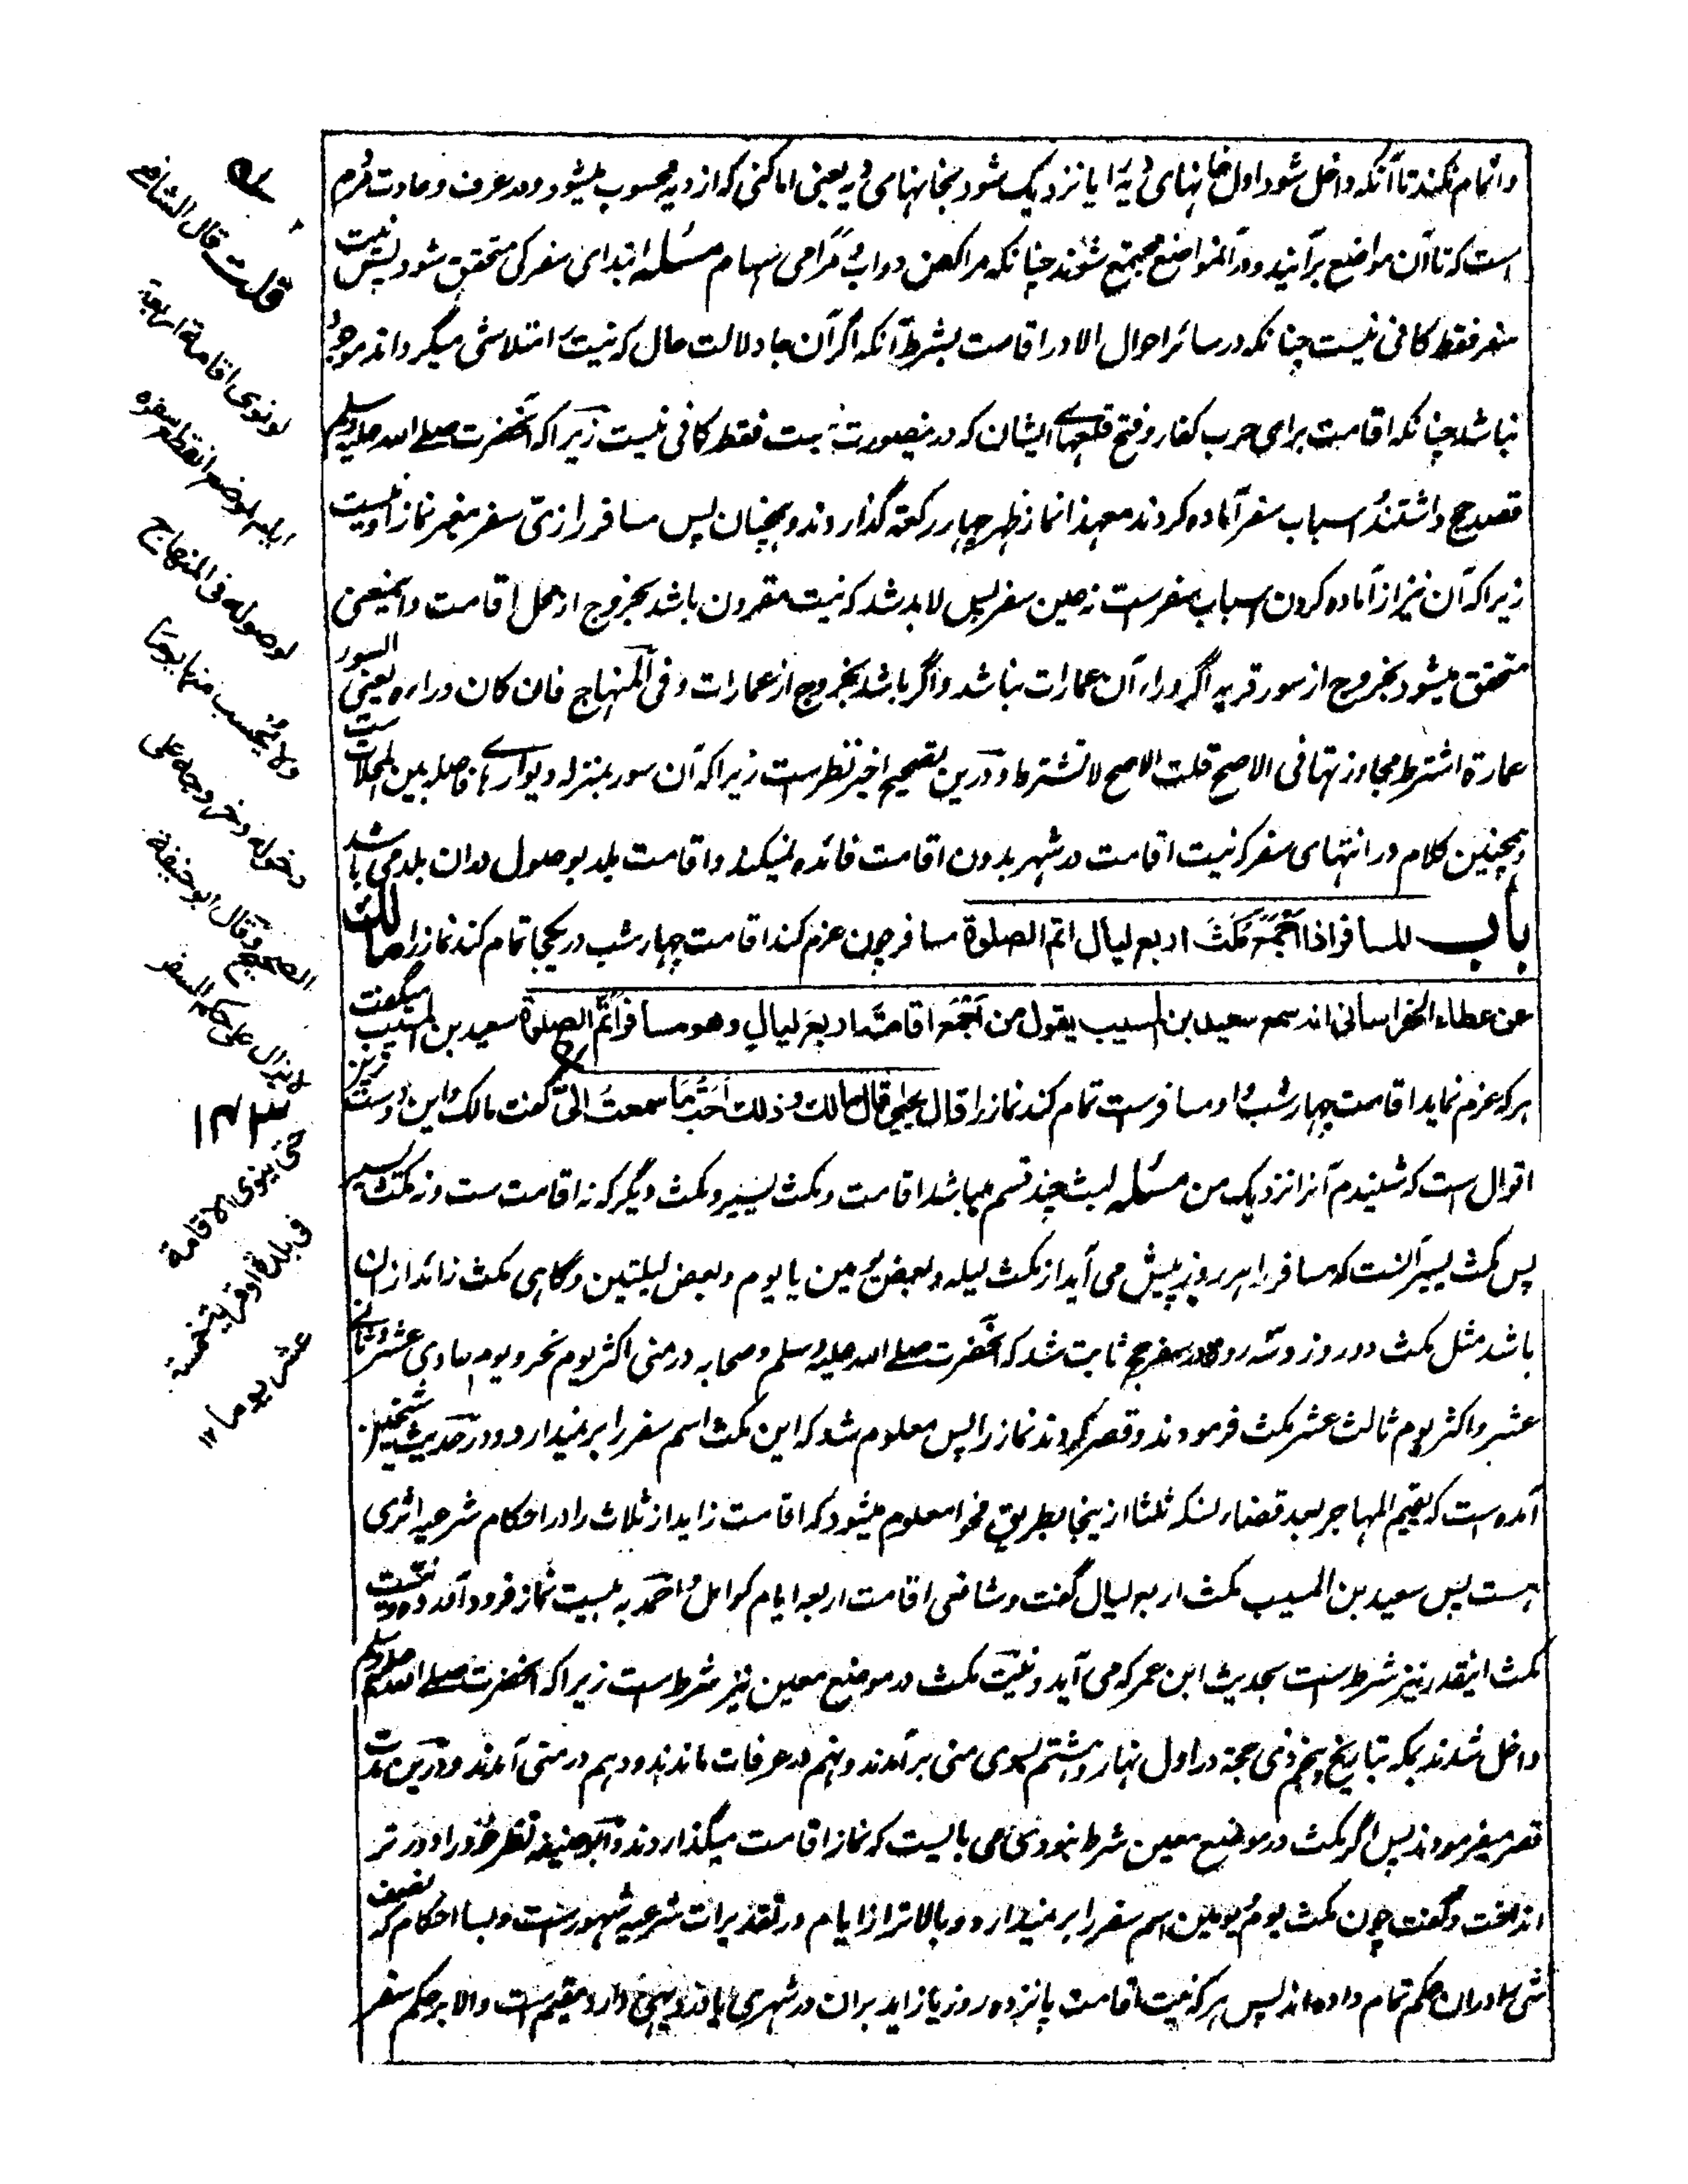 واتمام نکند تا آنکه داخل شود اول خانهای دیه را یا نزدیک شود بخانهای دیه یعنی اماکنی که از دیه محسوب میشود ودر عرف وعادت مردم
است که تا آن مواضع برآیند ودر آنمواضع مجتمع شوند چنانکه مراکض دواب ومرامی سهام مسئله ابتدای سفر کی متحقق شود پس نیت
سفر فقط کافی نیست چنانکه در سائر احوال الا در اقامت بشرط آنکه اگر آن جا دلالت حال که نیت را متلاشی میگرداند موجود
نباشد چنانکه اقامت برای حرب کفار وفتح قلعهای ایشان که درینصورت نیت فقط کافی نیست زیرا که آنحضرت صلے الله علیه وسلم
قصد حج داشتند واسباب سفر آماده کردند معهذا نماز ظهر چهار رکعة گذاردند وهمچنان پس مسافر را زی سفر مغیر نماز او نیست
زیرا که آن نیز از آماده کردن اسباب سفرست نه عین سفر پس لابد شد که نیت مقرون باشد بخروج از محل اقامت واینمعنی
متحقق میشود بخروج از سور قریه اگر وراء آن عمارات نباشد واگر باشد بخروج از عمارات وفی المنهاج فان کان وراءه یعنی السور
عمارة اشترط مجاوزتها فی الاصح قلت الاصح لا تشترط ودرین تصحیح اخیر نظرست زیرا که آن سور بمنزله دیوارے فاصله بین المحلات ست
وهمچنین کلام در انتهای سفر که نیت اقامت در شهر بدون اقامت فائده نمیکند واقامت بلد بوصول بدان بلد می باشد
باب للمسافر اذا اجمع مکث اربع لیال اتم الصلوة مسافر چون عزم کند اقامت چهار شب در یکجا تمام کند نماز را مالك
عن عطاء الخراسانی انه سمع سعید بن المسیب یقول من اجمع اقامة اربع لیال وهو مسافر اتم الصلوة سعید بن المسیب میگفت
هر که عزم نماید اقامت چهار شب واو مسافرست تمام کند نماز را قال یحیی قال مالك وذلك احب ما سمعت الیّ گفت مالک واین دوست ترین
اقوال است که شنیدم آنرا نزدیک من مسئله لبث چند قسم میباشد اقامت ومکث یسیر ومکث دیگر که نه اقامت ست ونه مکث یسیر
پس مکث یسیر آنست که مسافر را هر روز پیش می آید از مکث لیله وبعض یومین یا یوم وبعض لیلتین وگاهی مکث زائد ازان
باشد مثل مکث دو روز وسه روز ودر سفر حج ثابت شد که آنحضرت صلے الله علیه وسلم وصحابه در منی اکثر یوم نحر ویوم حادی عشر وثانی
عشر واکثر یوم ثالث عشر مکث فرمودند وقصر کردند نماز را پس معلوم شد که این مکث اسم سفر را بر نمیدارد ودر حدیث شیخین
آمده است که یقیم المهاجر بعد قضاء نسکه ثلثا ازینجا بطریق فحوا معلوم میشود که اقامت زاید از ثلاث را در احکام شرعیه اثری
هست پس سعید بن المسیب مکث اربع لیال گفت وشافعی اقامت اربعه ایام کوامل واحمد به بیست نماز فرود آمد ونیت
مکث اینقدر نیز شرط ست بحدیث ابن عمر که می آید ونیت مکث در موضع معین نیز شرط است زیرا که آنحضرت صلے الله علیه وسلم
داخل شدند بمکه بتاریخ پنجم ذی حجة در اول نهار وهشتم بسوی منی برآمدند ونهم در عرفات ماندند ودهم در منی آمدند ودرین مدت
قصر میفرمودند پس اگر مکث در موضع معین شرط نبودی می بایست که نماز اقامت میگذاردند وابو حنیفه نظر خود را دور تر
انداخت وگفت چون مکث یوم ویومین اسم سفر را بر نمیدارد وبالاتر از ایام در تقدیرات شرعیه شهورست وبسا احکام که نصف
شی را دران حکم تمام داده اند پس هر که نیت اقامت پانزده روز یا زاید بران در شهری یا در دیهی دارد مقیم ست والا بر حکم سفر
قلت قال الشافعی
لو نوی اقامة اربعة
ایام بموضع انقطع سفره
بوصوله فی المنهاج
ولا یحسب منها یوما
دخوله وخروجه علی
الصحیح وقال ابو حنیفة
لا یزال علی حکم السفر
١٤٣
حتی ینوی الاقامة
فی بلدة او قریة خمسة
عشر یوما ١٢